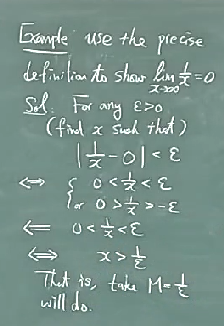 Example use the precise
definition to show lim x→∞ 1/x = 0
Sol: For any ε>0
(find x such that)
|1/x - 0| < ε
⇔ { 0 < 1/x < ε
or 0 > 1/x > -ε
⇐ 0 < 1/x < ε
⇔ x > 1/ε
That is, take M = 1/ε
will do.